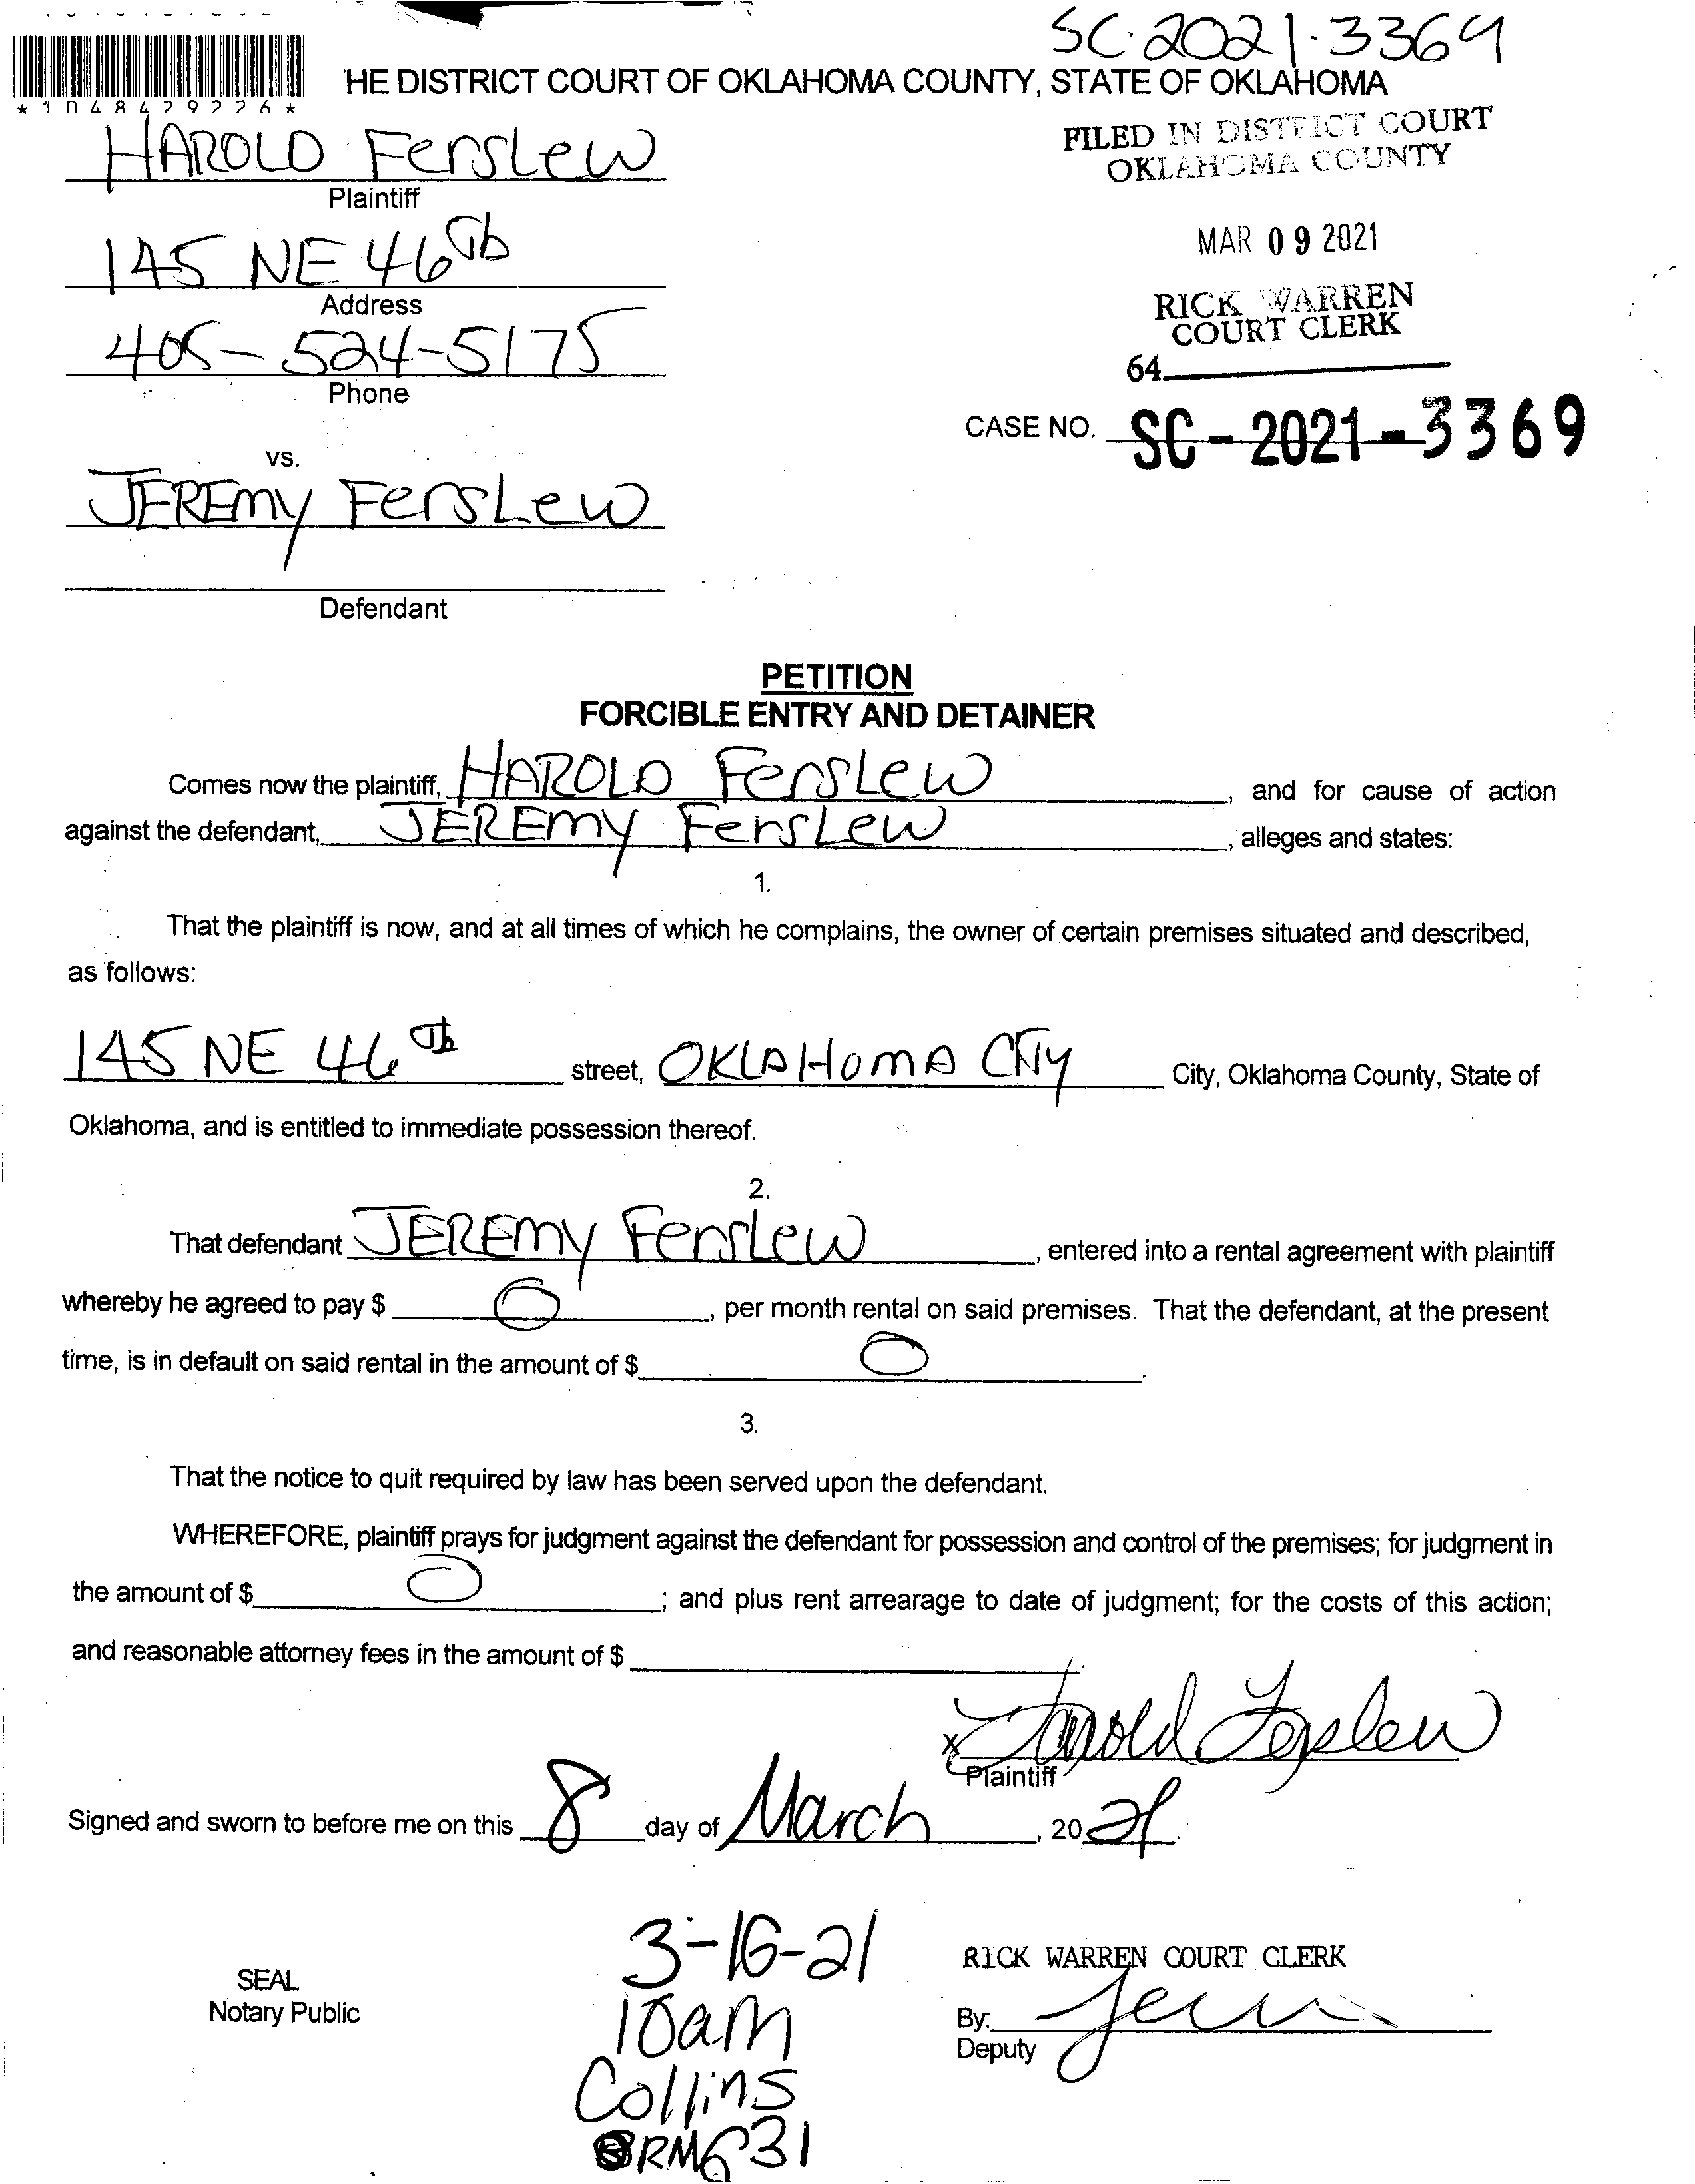 SC-2021-3369
HE DISTRICT COURT OF OKLAHOMA COUNTY, STATE OF OKLAHOMA
*1048429226*
FILED IN DISTRICT COURT
OKLAHOMA COUNTY
HAROLD Ferslew
Plaintiff
MAR 09 2021
145 NE 46th
Address
RICK WARREN
COURT CLERK
405-524-5175
64
Phone
CASE NO. SC-2021-3369
vs.
JEREMY Ferslew
Defendant
PETITION
FORCIBLE ENTRY AND DETAINER
Comes now the plaintiff, HAROLD Ferslew, and for cause of action
against the defendant, JEREMY Ferslew, alleges and states:
1.
That the plaintiff is now, and at all times of which he complains, the owner of certain premises situated and described,
as follows:
145 NE 46th street, OKLAHOMA CITY City, Oklahoma County, State of
Oklahoma, and is entitled to immediate possession thereof.
2.
That defendant JEREMY Ferslew, entered into a rental agreement with plaintiff
whereby he agreed to pay $ 0, per month rental on said premises. That the defendant, at the present
time, is in default on said rental in the amount of $ 0.
3.
That the notice to quit required by law has been served upon the defendant.
WHEREFORE, plaintiff prays for judgment against the defendant for possession and control of the premises; for judgment in
the amount of $ 0; and plus rent arrearage to date of judgment; for the costs of this action;
and reasonable attorney fees in the amount of $
x Harold Ferslew
Plaintiff
Signed and sworn to before me on this 8 day of March, 2021.
3-16-21
RICK WARREN COURT CLERK
SEAL
Notary Public
10am
By:
Deputy
Collins
RM 631